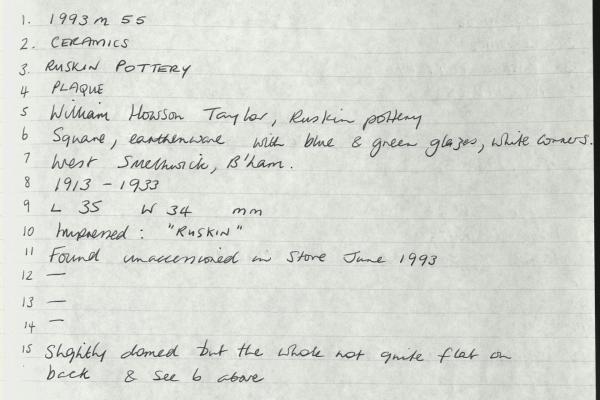 1. 1993 M 55
2. CERAMICS
3. RUSKIN POTTERY
4 PLAQUE
5 William Howson Taylor, Ruskin pottery
6 Square, earthenware with blue & green glazes, white corners.
7 West Smethwick, B'ham.
8 1913 - 1933
9 L 35 W 34 mm
10 Impressed : "RUSKIN"
11 Found unaccessioned in Store June 1993
12 —
13 —
14 —
15 Slightly domed but the whole not quite flat on
back & see 6 above